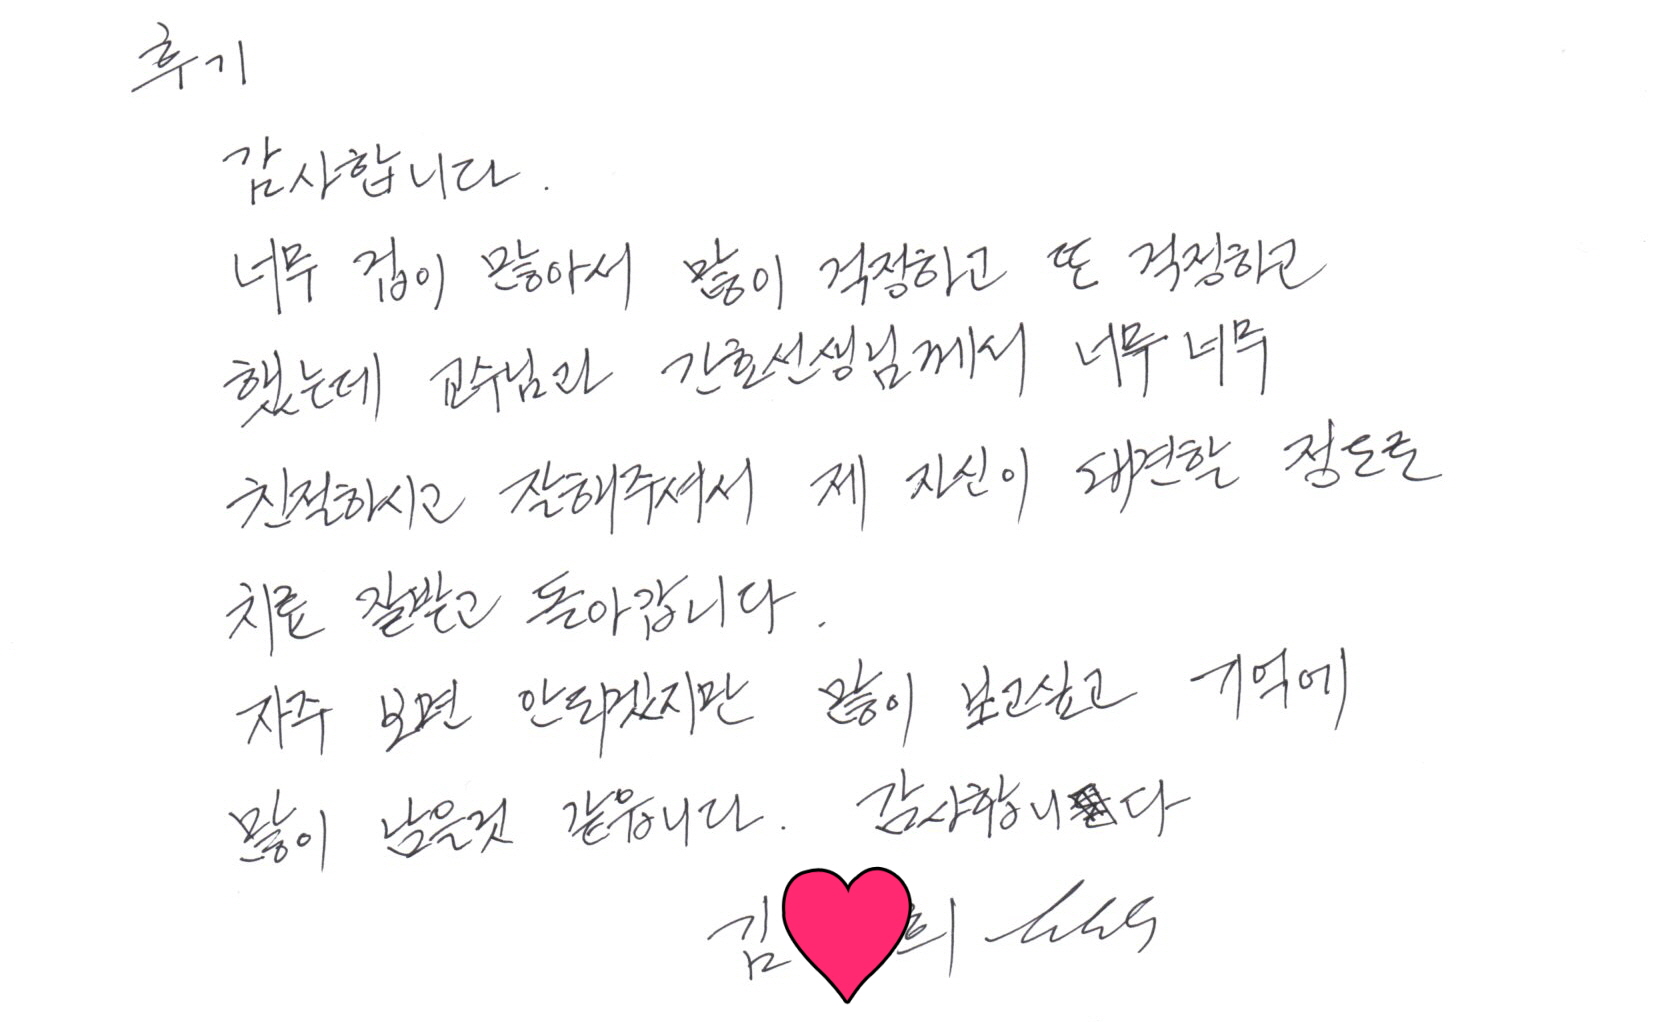 후기
감사합니다.
너무 겁이 많아서 많이 걱정하고 또 걱정하고
했는데 교수님과 간호선생님께서 너무 너무
친절하시고 잘해주셔서 제 자신이 대견할 정도로
치료 잘받고 돌아갑니다.
자주 보면 안되겠지만 많이 보고싶고 기억에
많이 남을것 같읍니다. 감사합니다
김 희